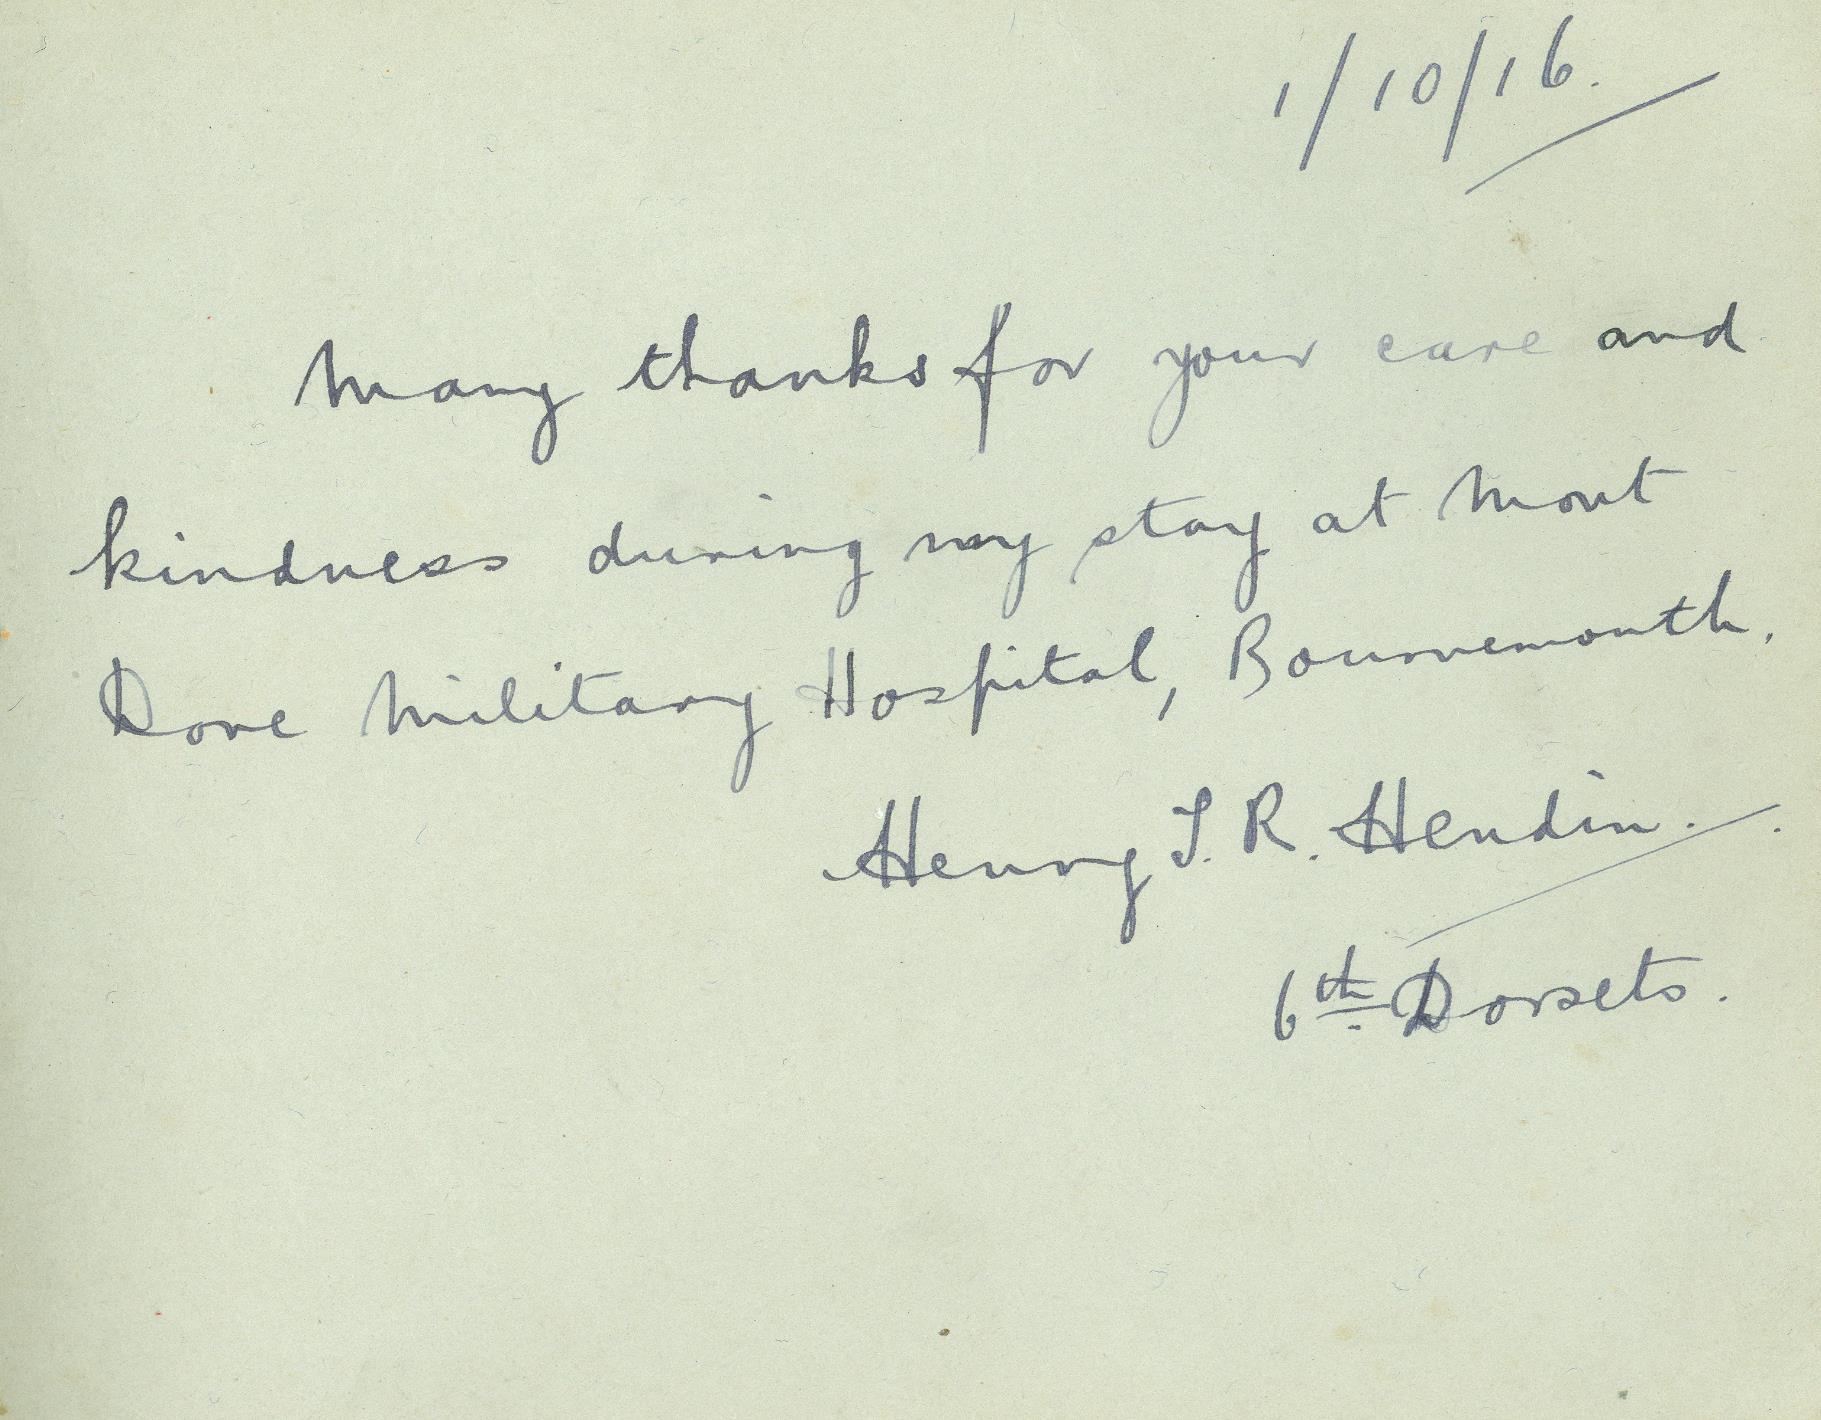 1/10/16.
Many thanks for your care and
kindness during my stay at Mont
Dore Military Hospital, Bournemouth.
Henry J. R. Hendin.
6th Dorsets.